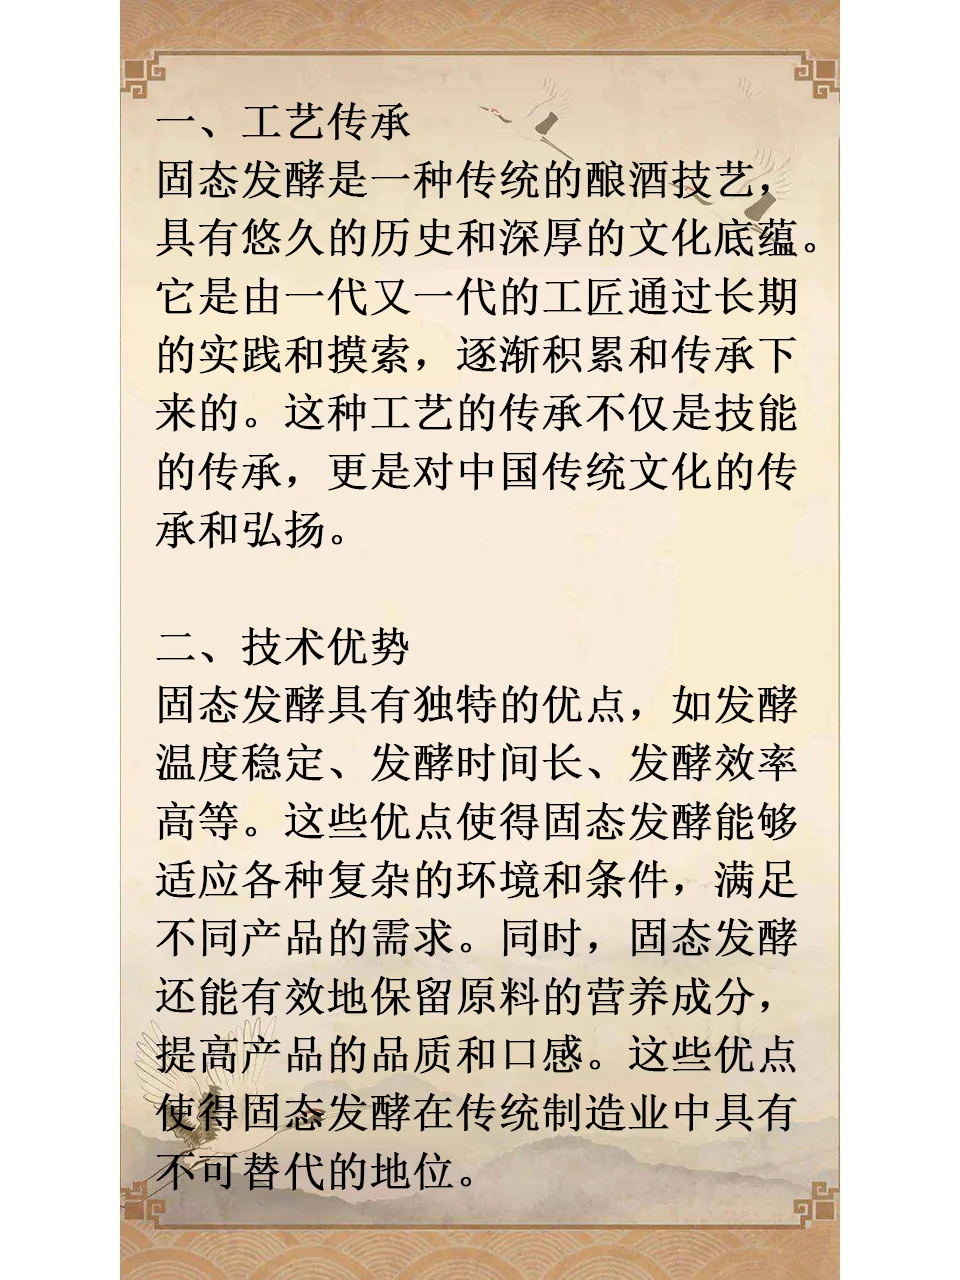 一、工艺传承
固态发酵是一种传统的酿酒技艺，
具有悠久的历史和深厚的文化底蕴。
它是由一代又一代的工匠通过长期
的实践和摸索，逐渐积累和传承下
来的。这种工艺的传承不仅是技能
的传承，更是对中国传统文化的传
承和弘扬。
二、技术优势
固态发酵具有独特的优点，如发酵
温度稳定、发酵时间长、发酵效率
高等。这些优点使得固态发酵能够
适应各种复杂的环境和条件，满足
不同产品的需求。同时，固态发酵
还能有效地保留原料的营养成分，
提高产品的品质和口感。这些优点
使得固态发酵在传统制造业中具有
不可替代的地位。